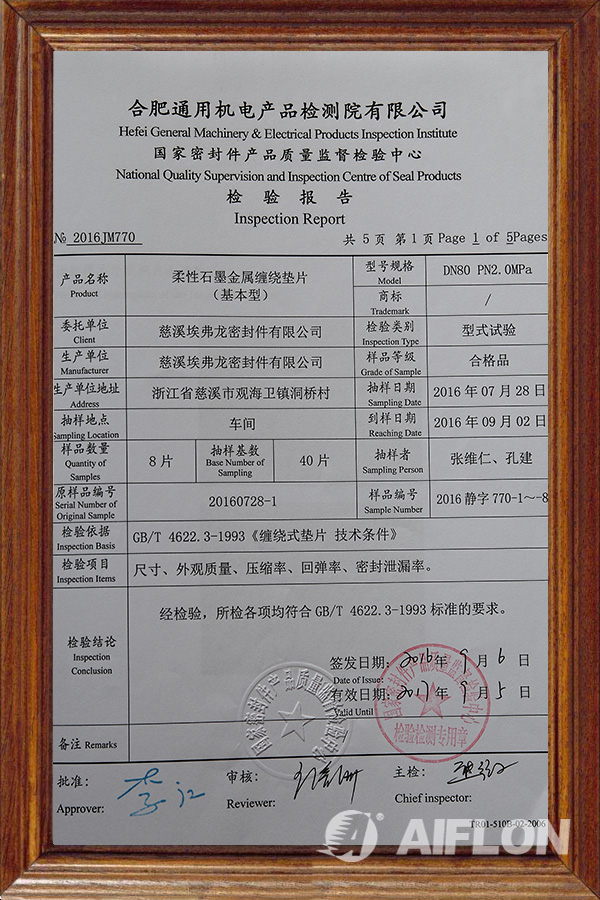 合肥通用机电产品检测院有限公司
Hefei General Machinery & Electrical Products Inspection Institute
国家密封件产品质量监督检验中心
National Quality Supervision and Inspection Centre of Seal Products
检 验 报 告
Inspection Report
№ 2016JM770 共 5 页 第 1 页 Page 1 of 5Pages
产品名称 Product 柔性石墨金属缠绕垫片 (基本型) 型号规格 Model DN80 PN2.0MPa
商标 Trademark /
委托单位 Client 慈溪埃弗龙密封件有限公司 检验类别 Inspection Type 型式试验
生产单位 Manufacturer 慈溪埃弗龙密封件有限公司 样品等级 Grade of Sample 合格品
生产单位地址 Address 浙江省慈溪市观海卫镇洞桥村 抽样日期 Sampling Date 2016 年 07 月 28 日
抽样地点 Sampling Location 车间 到样日期 Reaching Date 2016 年 09 月 02 日
样品数量 Quantity of Samples 8 片 抽样基数 Base Number of Sampling 40 片 抽样者 Sampling Person 张维仁、孔建
原样品编号 Serial Number of Original Sample 20160728-1 样品编号 Sample Number 2016 静字 770-1~-8
检验依据 Inspection Basis GB/T 4622.3-1993《缠绕式垫片 技术条件》
检验项目 Inspection Items 尺寸、外观质量、压缩率、回弹率、密封泄漏率。
检验结论 Inspection Conclusion 经检验，所检各项均符合 GB/T 4622.3-1993 标准的要求。
签发日期: 2016年 9 月 6 日
Date of Issue:
有效日期: 2017年 9 月 5 日
Valid Until
国家密封件产品质量监督检验中心
检验检测专用章
备注 Remarks
批准: 审核: 主检:
Approver: Reviewer: Chief inspector:
TR01-510B-02-2006
AIFLON